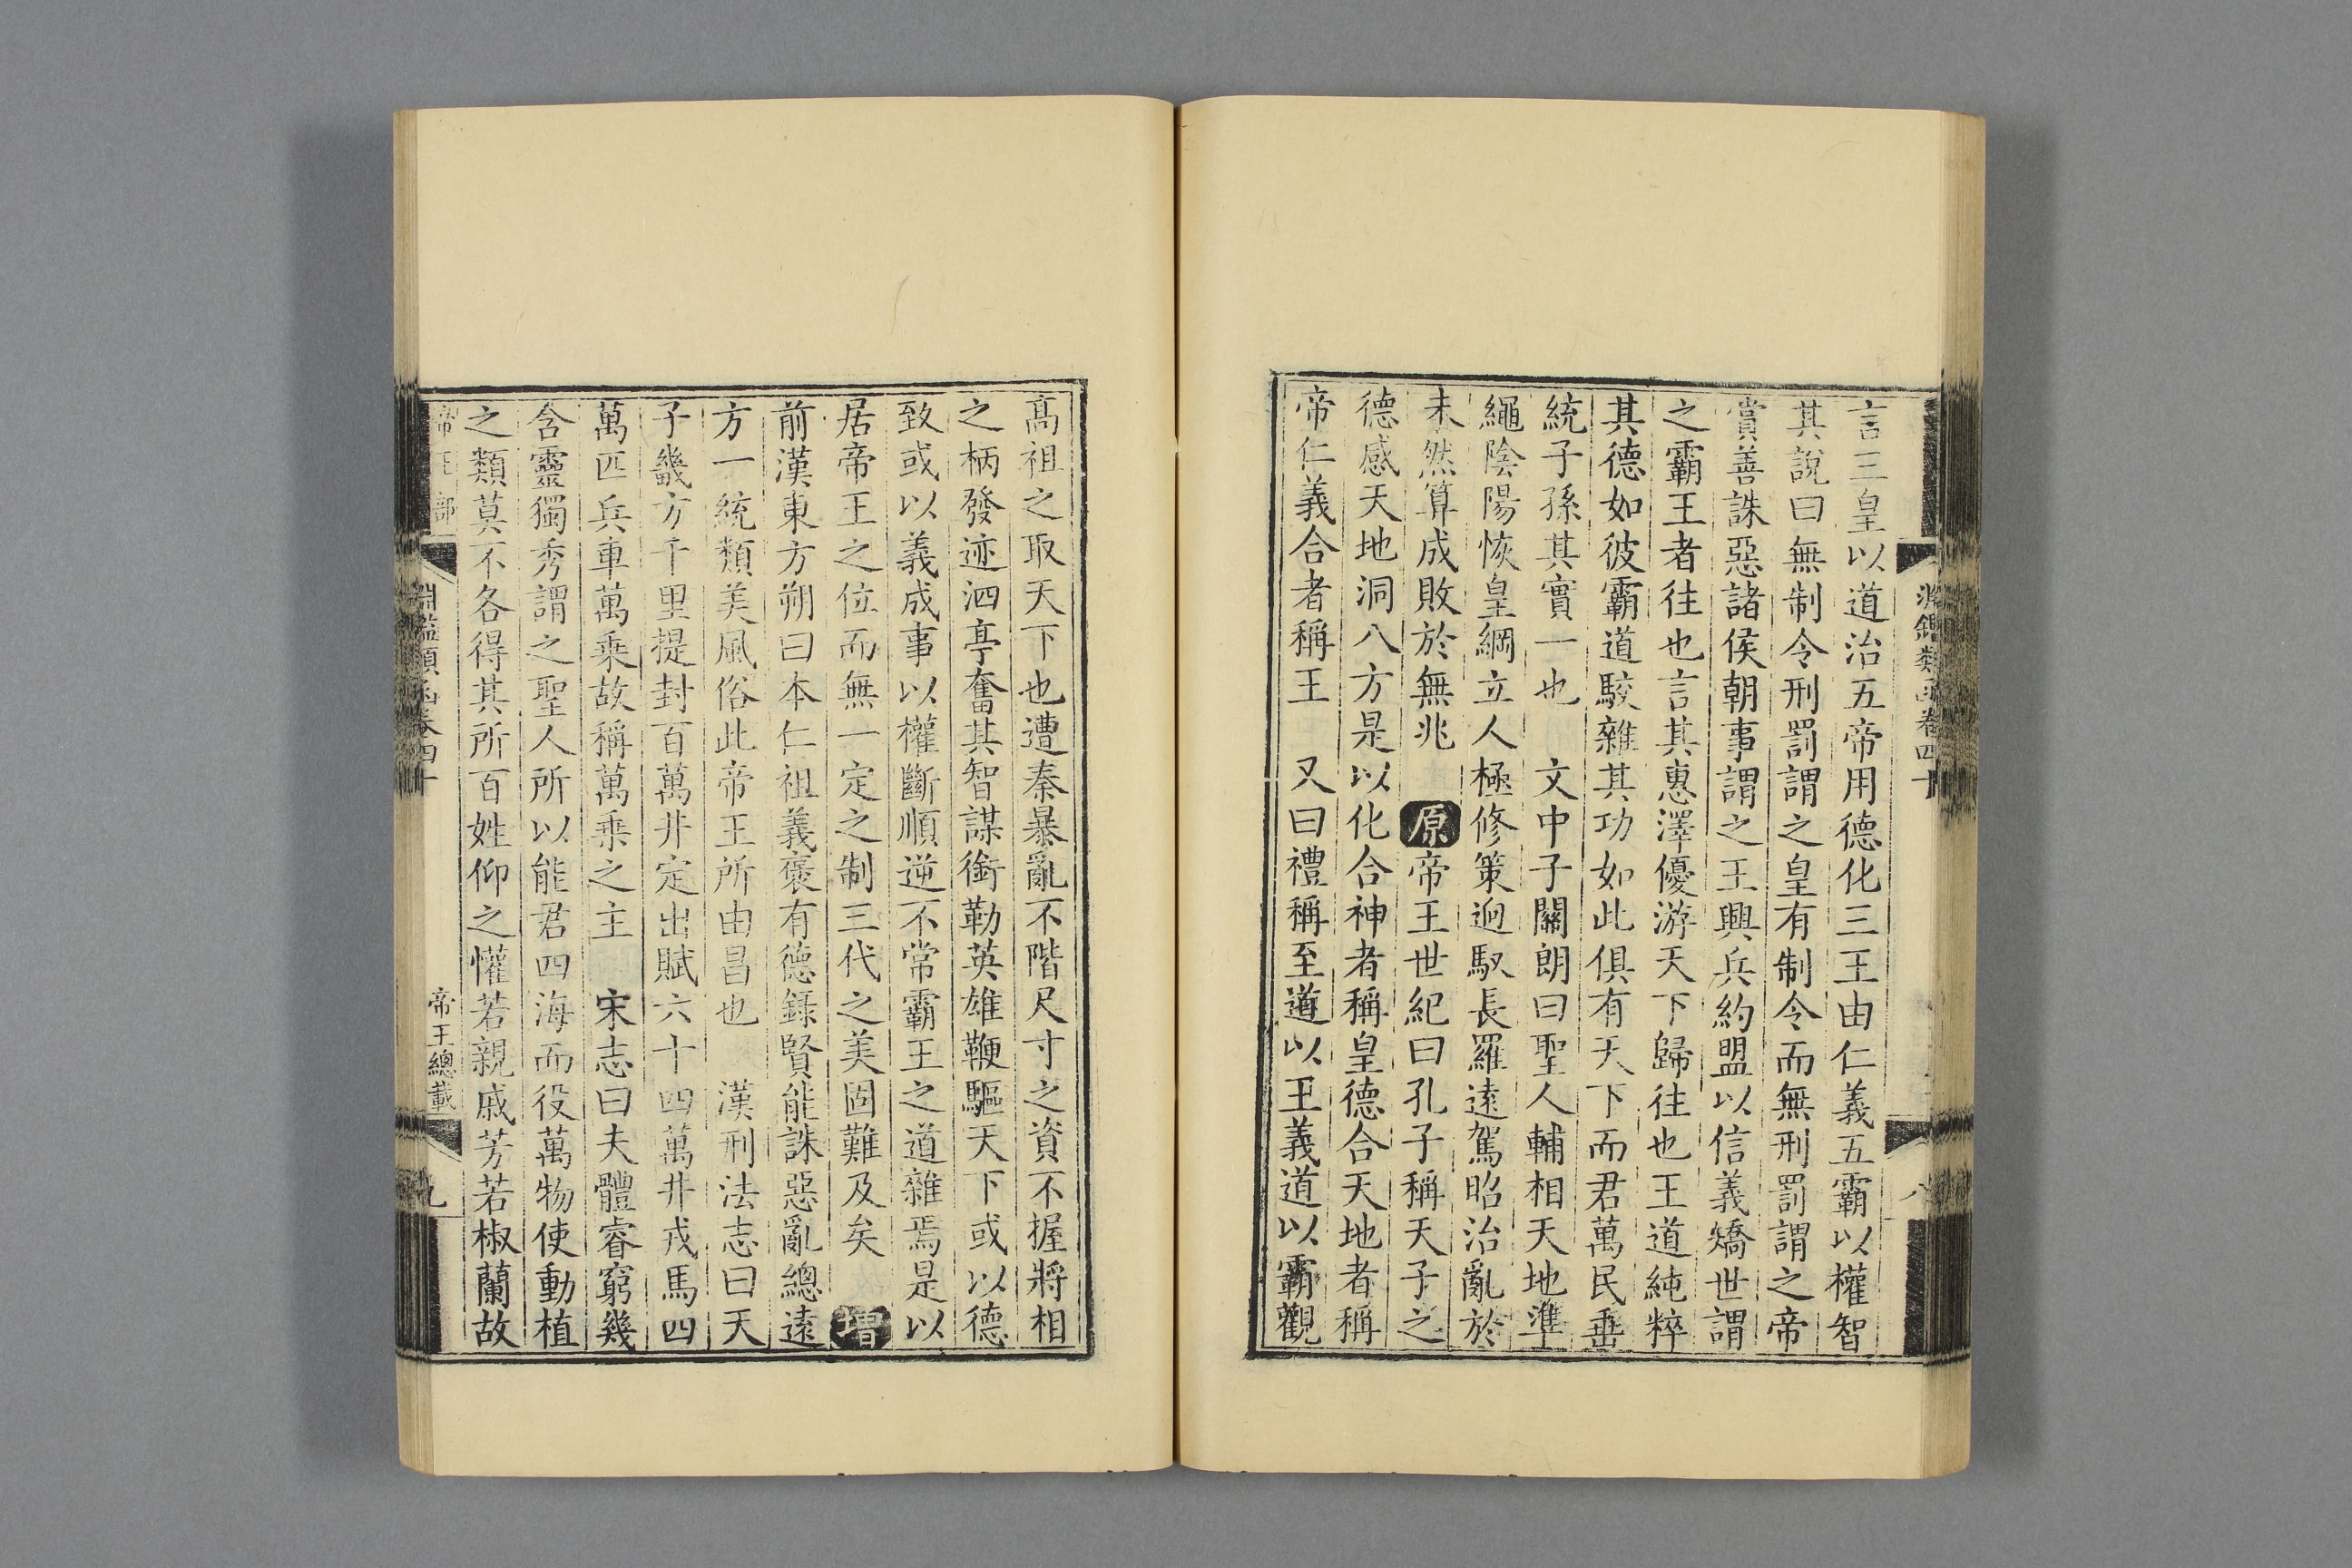 淵鑑類函卷四十
八
言三皇以道治五帝用德化三王由仁義五霸以權智
其說曰無制令刑罰謂之皇有制令而無刑罰謂之帝
賞善誅惡諸侯朝事謂之王興兵約盟以信義矯世謂
之霸王者往也言其惠澤優游天下歸往也王道純粹
其德如彼霸道駮雜其功如此俱有天下而君萬民垂
統子孫其實一也　文中子關朗曰聖人輔相天地準
繩陰陽恢皇綱立人極修策逈馭長羅遠駕昭治亂於
未然算成敗於無兆　原帝王世紀曰孔子稱天子之
德感天地洞八方是以化合神者稱皇德合天地者稱
帝仁義合者稱王　又曰禮稱至道以王義道以霸觀
高祖之取天下也遭秦暴亂不階尺寸之資不握將相
之柄發迹泗亭奮其智謀銜勒英雄鞭驅天下或以德
致或以義成事以權斷順逆不常霸王之道雜焉是以
居帝王之位而無一定之制三代之美固難及矣　增
前漢東方朔曰本仁祖義褒有德錄賢能誅惡亂總遠
方一統類美風俗此帝王所由昌也　漢刑法志曰天
子畿方千里提封百萬井定出賦六十四萬井戎馬四
萬匹兵車萬乘故稱萬乘之主　宋志曰夫體睿窮幾
含靈獨秀謂之聖人所以能君四海而役萬物使動植
之類莫不各得其所百姓仰之懽若親戚芳若椒蘭故
帝王部　淵鑑類函卷四十　帝王總載　九